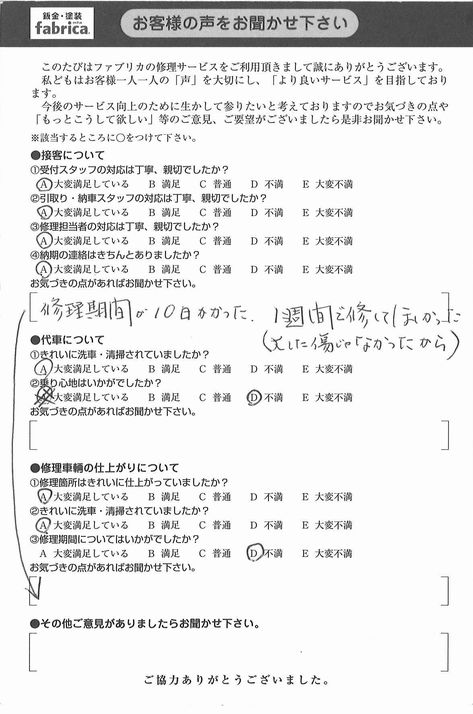 鈑金・塗装
fabrica.
お客様の声をお聞かせ下さい
このたびはファブリカの修理サービスをご利用頂きまして誠にありがとうございます。
私どもはお客様一人一人の「声」を大切にし、「より良いサービス」を目指しており
ます。
今後のサービス向上のために生かして参りたいと考えておりますのでお気づきの点や
「もっとこうして欲しい」等のご意見、ご要望がございましたら是非お聞かせ下さい。
※該当するところに○をつけて下さい。
●接客について
①受付スタッフの対応は丁寧、親切でしたか?
A 大変満足している B 満足 C 普通 D 不満 E 大変不満
②引取り・納車スタッフの対応は丁寧、親切でしたか?
A 大変満足している B 満足 C 普通 D 不満 E 大変不満
③修理担当者の対応は丁寧、親切でしたか?
A 大変満足している B 満足 C 普通 D 不満 E 大変不満
④納期の連絡はきちんとありましたか?
A 大変満足している B 満足 C 普通 D 不満 E 大変不満
お気づきの点があればお聞かせ下さい。
修理期間が10日かかった、1週間で修してほしかった
(大した傷じゃなかったから)
●代車について
①きれいに洗車・清掃されていましたか?
A 大変満足している B 満足 C 普通 D 不満 E 大変不満
②乗り心地はいかがでしたか?
A 大変満足している B 満足 C 普通 D 不満 E 大変不満
お気づきの点があればお聞かせ下さい。
●修理車輌の仕上がりについて
①修理箇所はきれいに仕上がっていましたか?
A 大変満足している B 満足 C 普通 D 不満 E 大変不満
②きれいに洗車・清掃されていましたか?
A 大変満足している B 満足 C 普通 D 不満 E 大変不満
③修理期間についてはいかがでしたか?
A 大変満足している B 満足 C 普通 D 不満 E 大変不満
お気づきの点があればお聞かせ下さい。
●その他ご意見がありましたらお聞かせ下さい。
ご協力ありがとうございました。